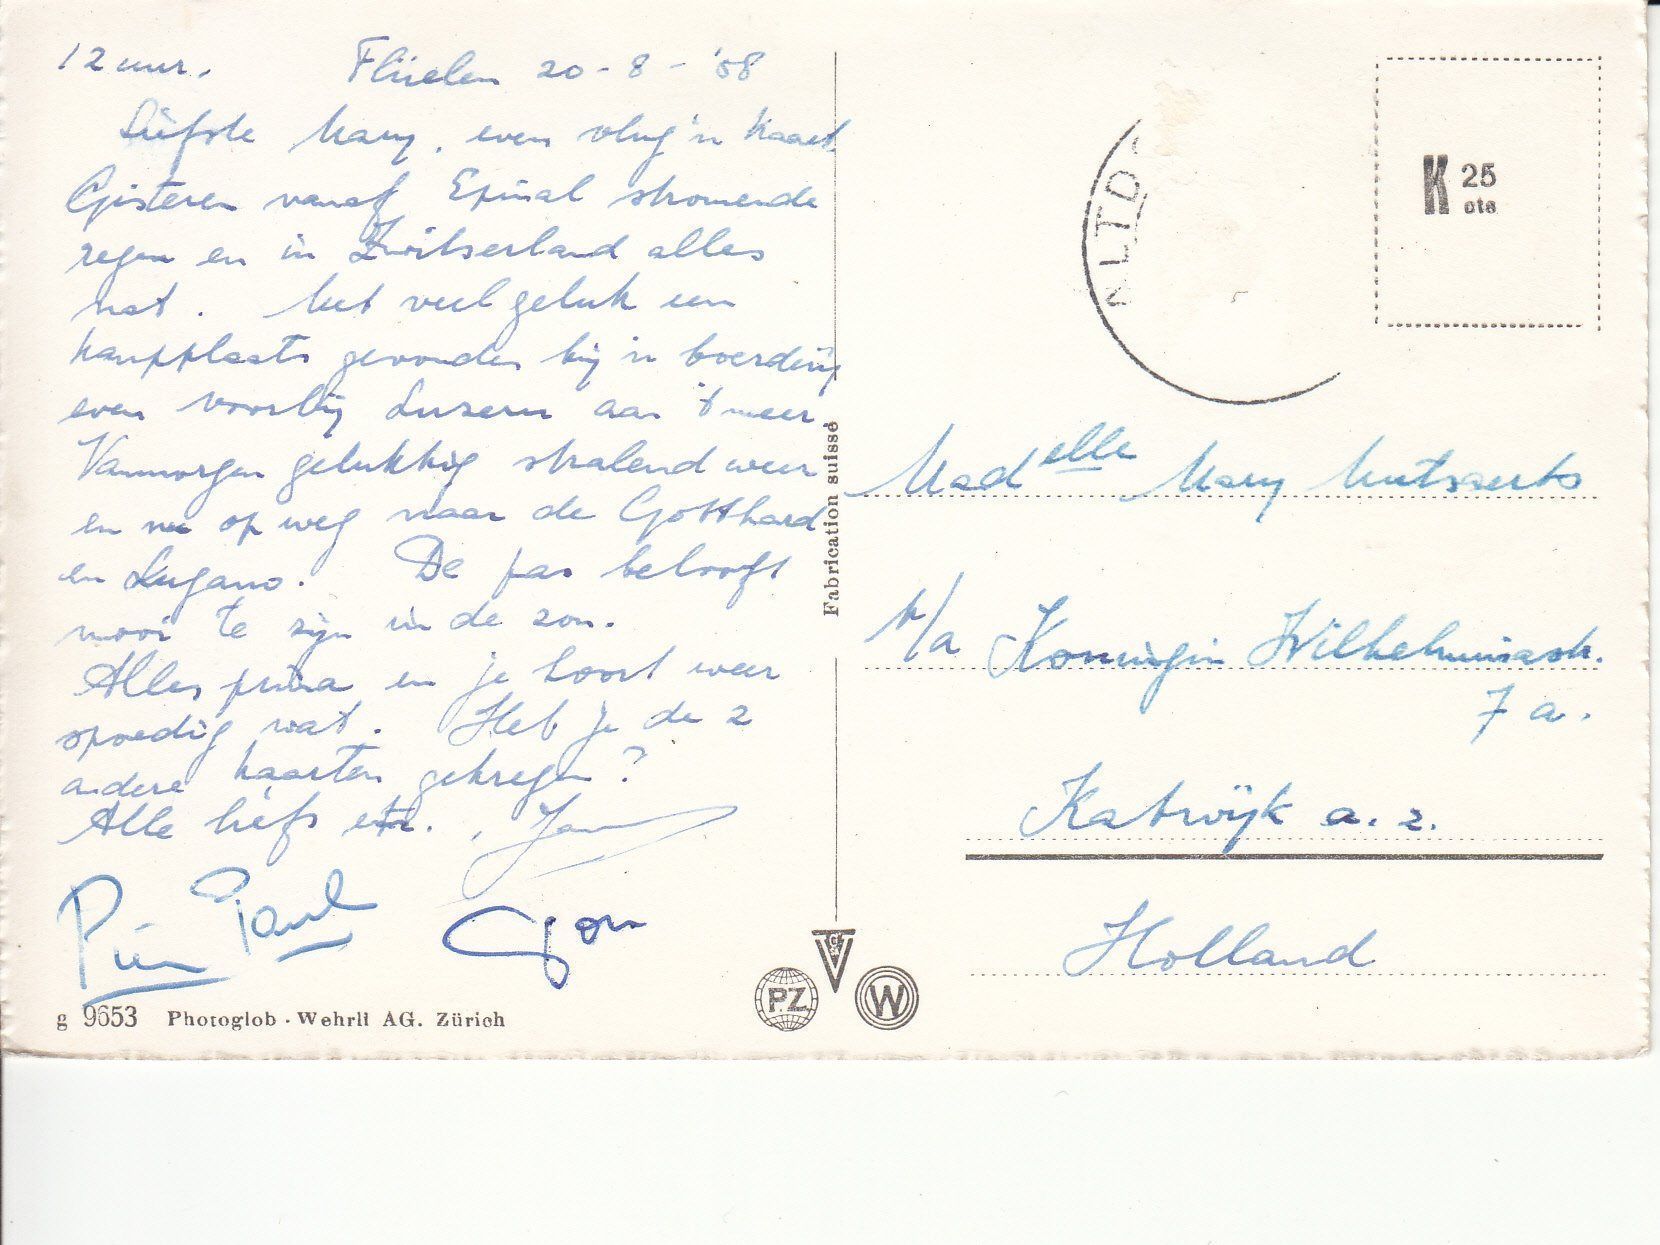 12 uur. Flüelen 20-8-'58
Liefste Mary, even vlug 'n kaart.
Gisteren vanaf Epinal stromende
regen en in Zwitserland alles
nat. Met veel geluk een
kampplaats gevonden bij 'n boerderij
even voorbij Luzern aan 't meer.
Vanmorgen gelukkig stralend weer
en nu op weg naar de Gotthard
en Lugano. De pas belooft
mooi te zijn in de zon.
Alles prima en je hoort weer
spoedig wat. Heb je de 2
andere kaarten gekregen?
Alle liefs
Paul
g 9653 Photoglob - Wehrli AG. Zürich
Fabrication suisse
PZ
W
ALTD
K 25
cts
Madelle Mary Mutsaerts
p/a Koningin Wilhelminastr.
7a.
Katwijk a. z.
Holland